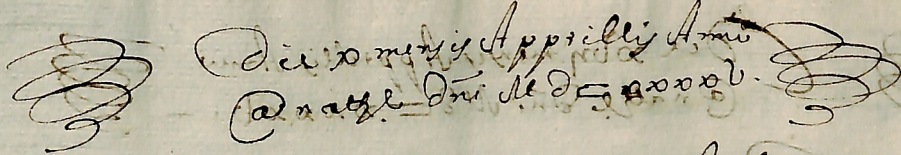 Die x mensis Apprillis Anno
A natte Dni M d c xxxxv.